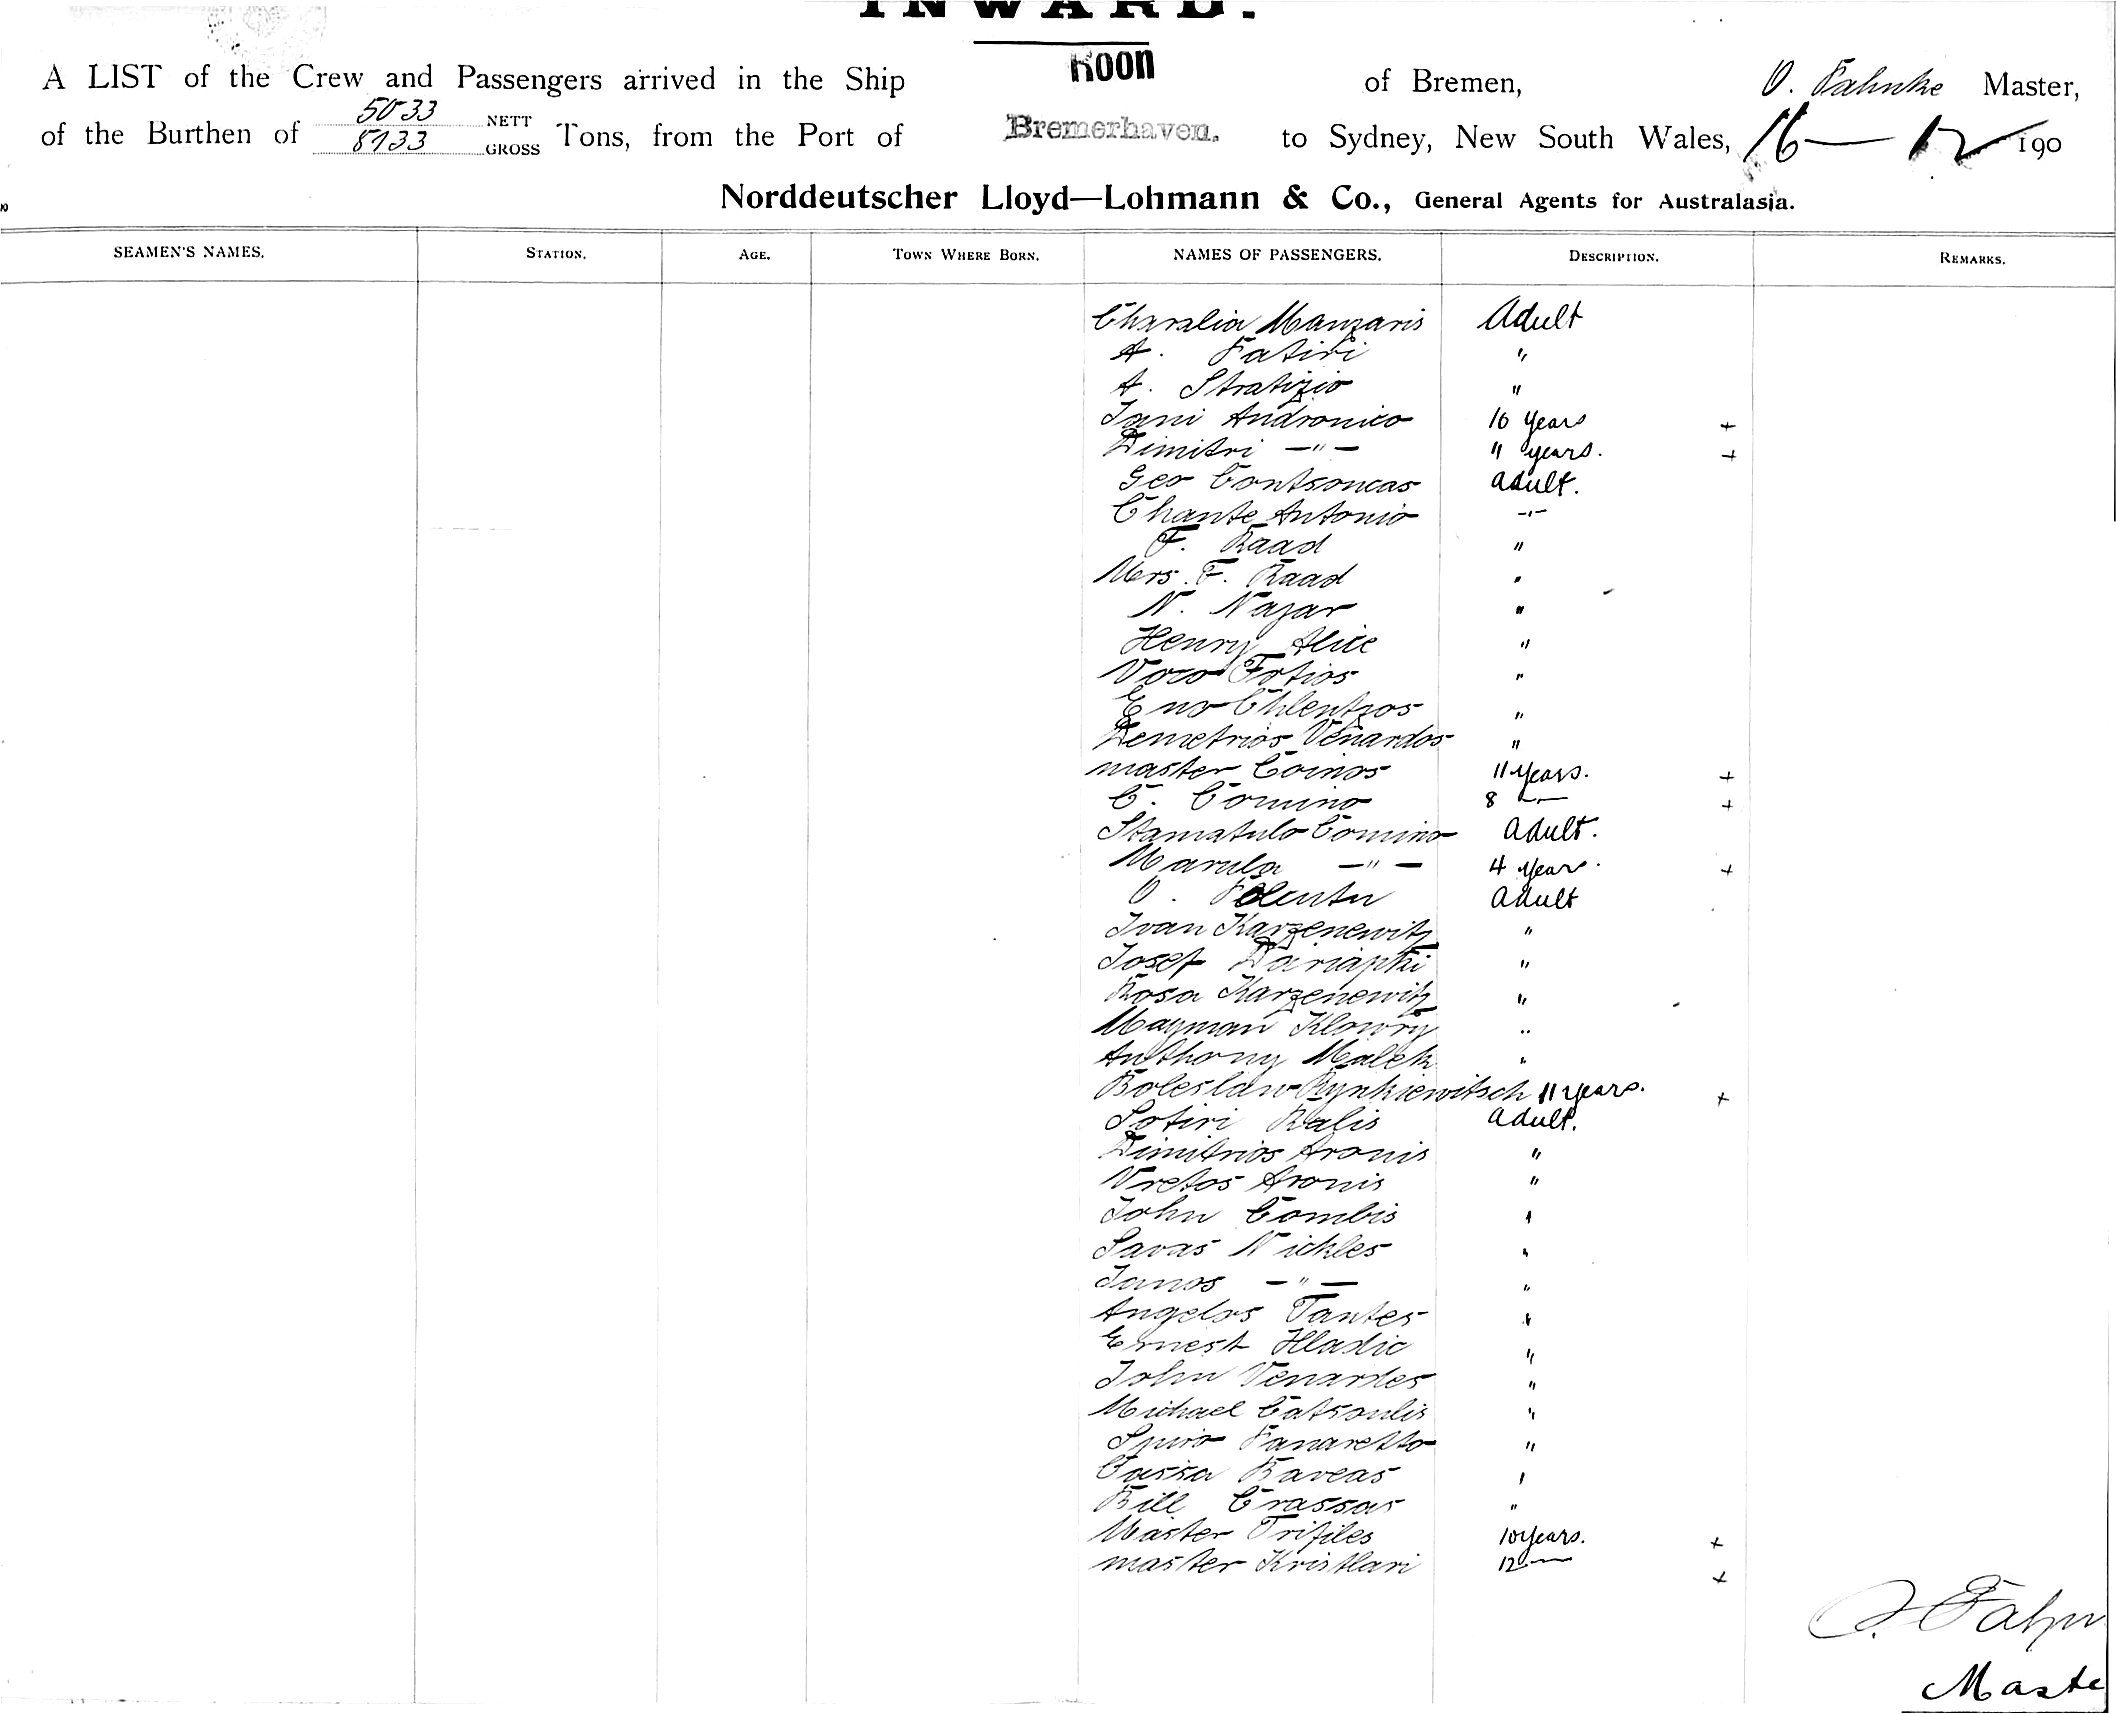 INWARD.
A LIST of the Crew and Passengers arrived in the Ship Roon of Bremen, O. Fahnke Master,
of the Burthen of 5033 NETT 8133 GROSS Tons, from the Port of Bremerhaven. to Sydney, New South Wales, 16 — 12 190
Norddeutscher Lloyd—Lohmann & Co., General Agents for Australasia.
SEAMEN'S NAMES. STATION. AGE. TOWN WHERE BORN. NAMES OF PASSENGERS. DESCRIPTION. REMARKS.
Charalia Manzaris Adult
A. Fatiri "
A. Stratizio "
Jani Andronico 10 years +
Dimitri —"— 11 years. +
Geo Contsoucas adult.
Chante Antonio -"-
F. Raad "
Mrs. F. Raad "
N. Najar "
Henry Alice "
Voco Fotios "
Eno Chlentzos "
Demetrios Venardos "
master Coinos 11 years. +
C. Comino 8 —"— +
Stamatulo Comino adult.
Marula —"— 4 years. +
O. adult
Ivan Karzenewitz "
Josef Dariaphi "
Rosa Karzenewitz "
Mayman Klowry "
Anthony Malek "
Boleslaw Rynkiewitsch 11 years. +
Sotiri Ralis adult.
Dimitrios Aronis "
Vretos Aronis "
John Combis "
Savas Nickles "
Janos —"— "
Angelos Tantes "
Ernest Hladic "
John Venardes "
Michael Catsoulis "
Spiro Panaretto "
Cassa Raveas "
Bill Crassas "
Master Trifiles 10 years. +
master Kristlari 12 —"— +
O. Fahn
Maste